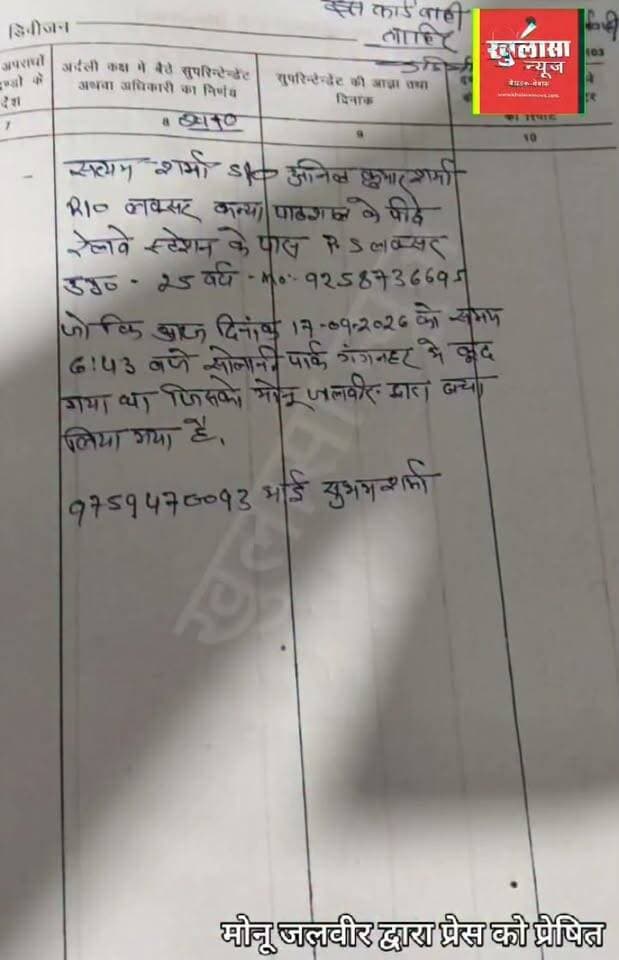 इस कार्ड वाली
जाहिर
डिवीजन
खुलासा
न्यूज
बेधड़क-बेबाक
103
अपराधों
दण्डों के
देश
अर्दली कक्ष में बैठे सुपरिन्टेन्डेंट
अथवा अधिकारी का निर्णय
सुपरिन्टेन्डेंट की आज्ञा तथा
दिनांक
7
8
9
10
सत्यम शर्मा S/o अनिल कुमार शर्मा
R/o लक्सर कन्या पाठशाला के पीछे
रेलवे स्टेशन के पास P.S लक्सर
उम्र - 25 वर्ष - Mo:- 9258736695
जो कि आज दिनांक 17-09-2026 को समय
6:43 बजे सोलानी पार्क गंगनहर में कूद
गया था जिसको मोनू जलवीर द्वारा बचा
लिया गया है.
9759470093 भाई शुभम शर्मा
खुलासा
मोनू जलवीर द्वारा प्रेस को प्रेषित